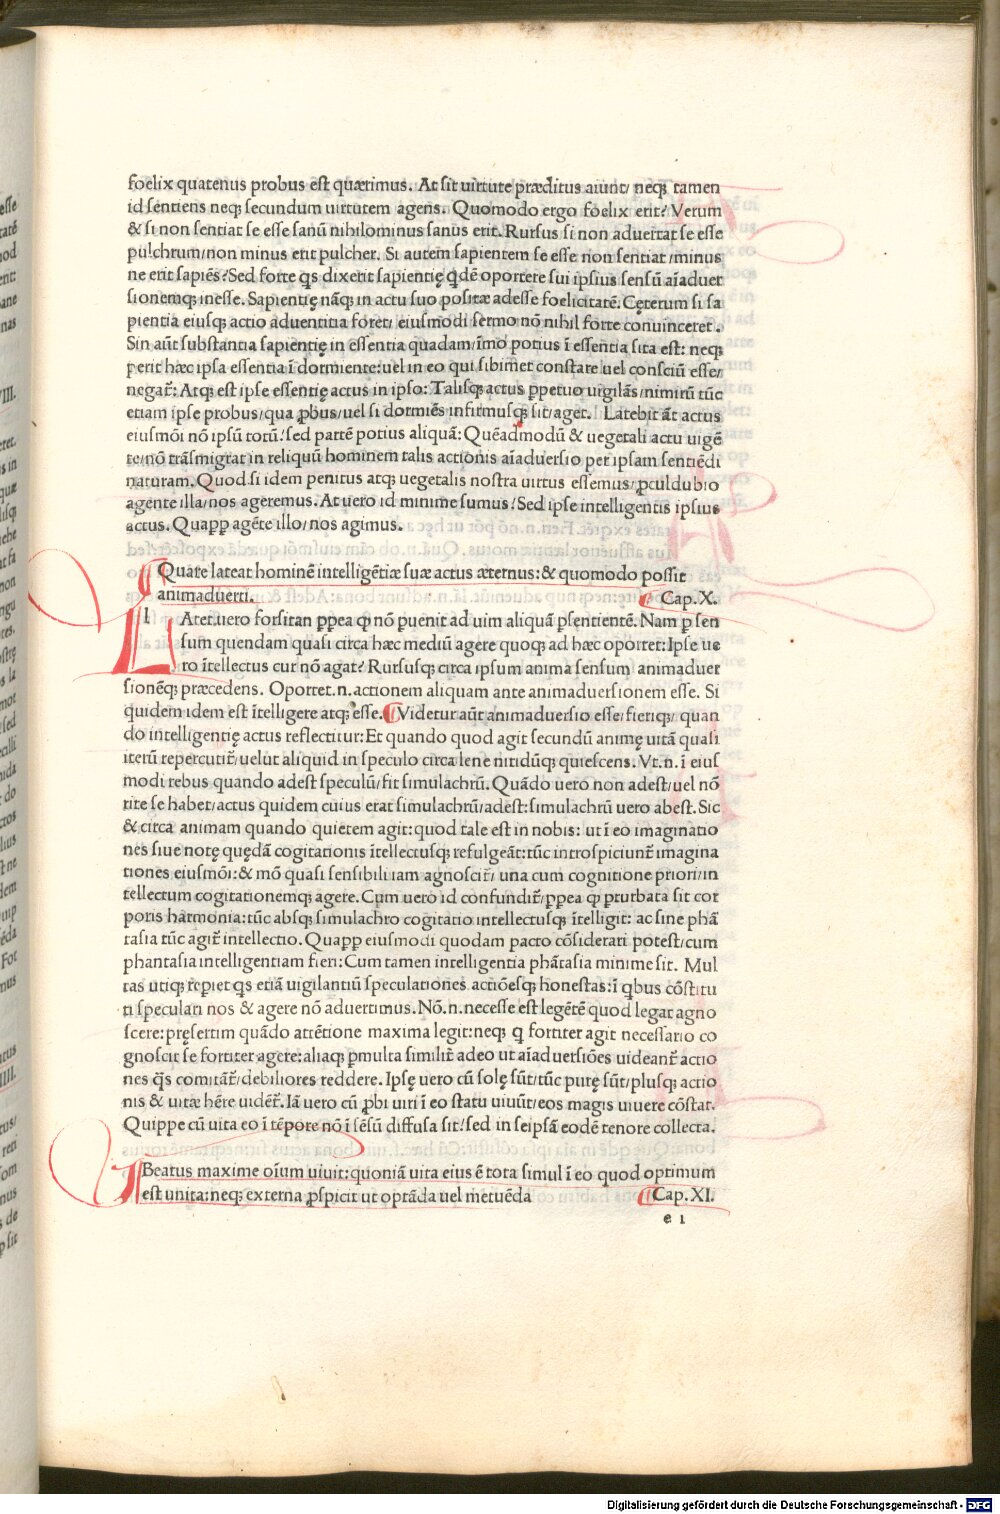 foelix quatenus probus est quærimus. At sit uirtute præditus aiunt/ neq; tamen
id sentiens neq; secundum uirtutem agens. Quomodo ergo foelix erit? Verum
& si non sentiat se esse sanū nihilominus sanus erit. Rursus si non aduertat se esse
pulchrum/non minus erit pulcher. Si autem sapientem se esse non sentiat/minus
ne erit sapiēs? Sed forte q̄s dixerit sapientię q̄dē oportere sui ipsius sensū aīaduer
sionemq; inesse. Sapientię nāq; in actu suo positæ adesse foelicitatē. Cęterum si sa
pientia eiusq; actio aduentitia foret/ eiusmodi sermo nō nihil forte conuinceret.
Sin aūt substantia sapientię in essentia quadam/īmo potius ī essentia sita est: neq;
perit hæc ipsa essentia ī dormiente: uel in eo qui sibimet constare uel consciū esse/
negat̄: Atq; est ipse essentię actus in ipso: Talisq; actus ꝑpetuo uigilās/nimirū tūc
etiam ipse probus/qua ꝓbus/uel si dormiēs infirmusq; sit/aget. Latebit āt actus
eiusmōi nō ipsū totū/sed partē potius aliquā: Quēadmodū & uegetali actu uigē
te/nō trāsmigrat in reliquū hominem talis actionis aīaduersio per ipsam sentiēdi
naturam. Quod si idem penitus atq; uegetalis nostra uirtus essemus/ꝓculdubio
agente illa/nos ageremus. At uero id minime sumus/Sed ipse intelligentis ipsius
actus. Quaꝓꝑ agēte illo/nos agimus.
Quare lateat hominē intelligētiæ suæ actus æternus: & quomodo possit
animaduerti. Cap. X.
l Atet uero forsitan ꝓꝑea qꝫ nō ꝑuenit ad uim aliquā ꝑsentientē. Nam ꝑ sen
sum quendam quasi circa hæc mediū agere quoq; ad hæc oportet: Ipse ue
ro ītellectus cur nō agat? Rursusq; circa ipsum anima sensum animaduer
sionēq; præcedens. Oportet .n. actionem aliquam ante animaduersionem esse. Si
quidem idem est ītelligere atq; esse. Videtur aūt animaduersio esse/fieriq;/ quan
do intelligentię actus reflectitur: Et quando quod agit secundū animę uitā quasi
iterū repercutit̄/uelut aliquid in speculo circa lene nitidūq; quiescens. Vt .n. ī eius
modi rebus quando adest speculū/fit simulachrū. Quādo uero non adest/uel nō
rite se habet/actus quidem cuius erat simulachrū/adest: simulachrū uero abest. Sic
& circa animam quando quietem agit: quod tale est in nobis: ut ī eo imaginatio
nes siue notę quędā cogitationis ītellectusq; refulgeāt: tūc introspiciunt̄ imagina
tiones eiusmōi: & mō quasi sensibili iam agnoscit̄/ una cum cognitione priori/in
tellectum cogitationemq; agere. Cum uero id confundit̄/ꝓꝑea qꝫ ꝑturbata sit cor
poris harmonia: tūc absq; simulachro cogitatio intellectusq; ītelligit: ac sine phā
tasia tūc agit̄ intellectio. Quaꝓꝑ eiusmodi quodam pacto cōsiderari potest/cum
phantasia intelligentiam fieri: Cum tamen intelligentia phātasia minime sit. Mul
tas utiq; reꝑiet q̄s etiā uigilantiū speculationes actiōesq; honestas: ī q̄bus cōstitu
ti speculari nos & agere nō aduertimus. Nō .n. necesse est legētē quod legat agno
scere: pręsertim quādo attētione maxima legit: neq; q fortiter agit necessario co
gnoscit se fortiter agere: aliaq; ꝑmulta similit̄ adeo ut aīaduersiōes uideant̄ actio
nes q̄s comitāt̄/debiliores reddere. Ipsę uero cū solę sūt/tūc purę sūt/plusq; actio
nis & uitæ hēre uidēt̄. Iā uero cū ꝓbi uiri ī eo statu uiuūt/eos magis uiuere cōstat.
Quippe cū uita eo ī tēpore nō ī sēsū diffusa sit/sed in seipsā eodē tenore collecta.
Beatus maxime oīum uiuit: quoniā uita eius ē tota simul ī eo quod optimum
est unita: neq; externa ꝓspicit ut optāda uel metuēda Cap. XI.
e i
Digitalisierung gefördert durch die Deutsche Forschungsgemeinschaft - DFG